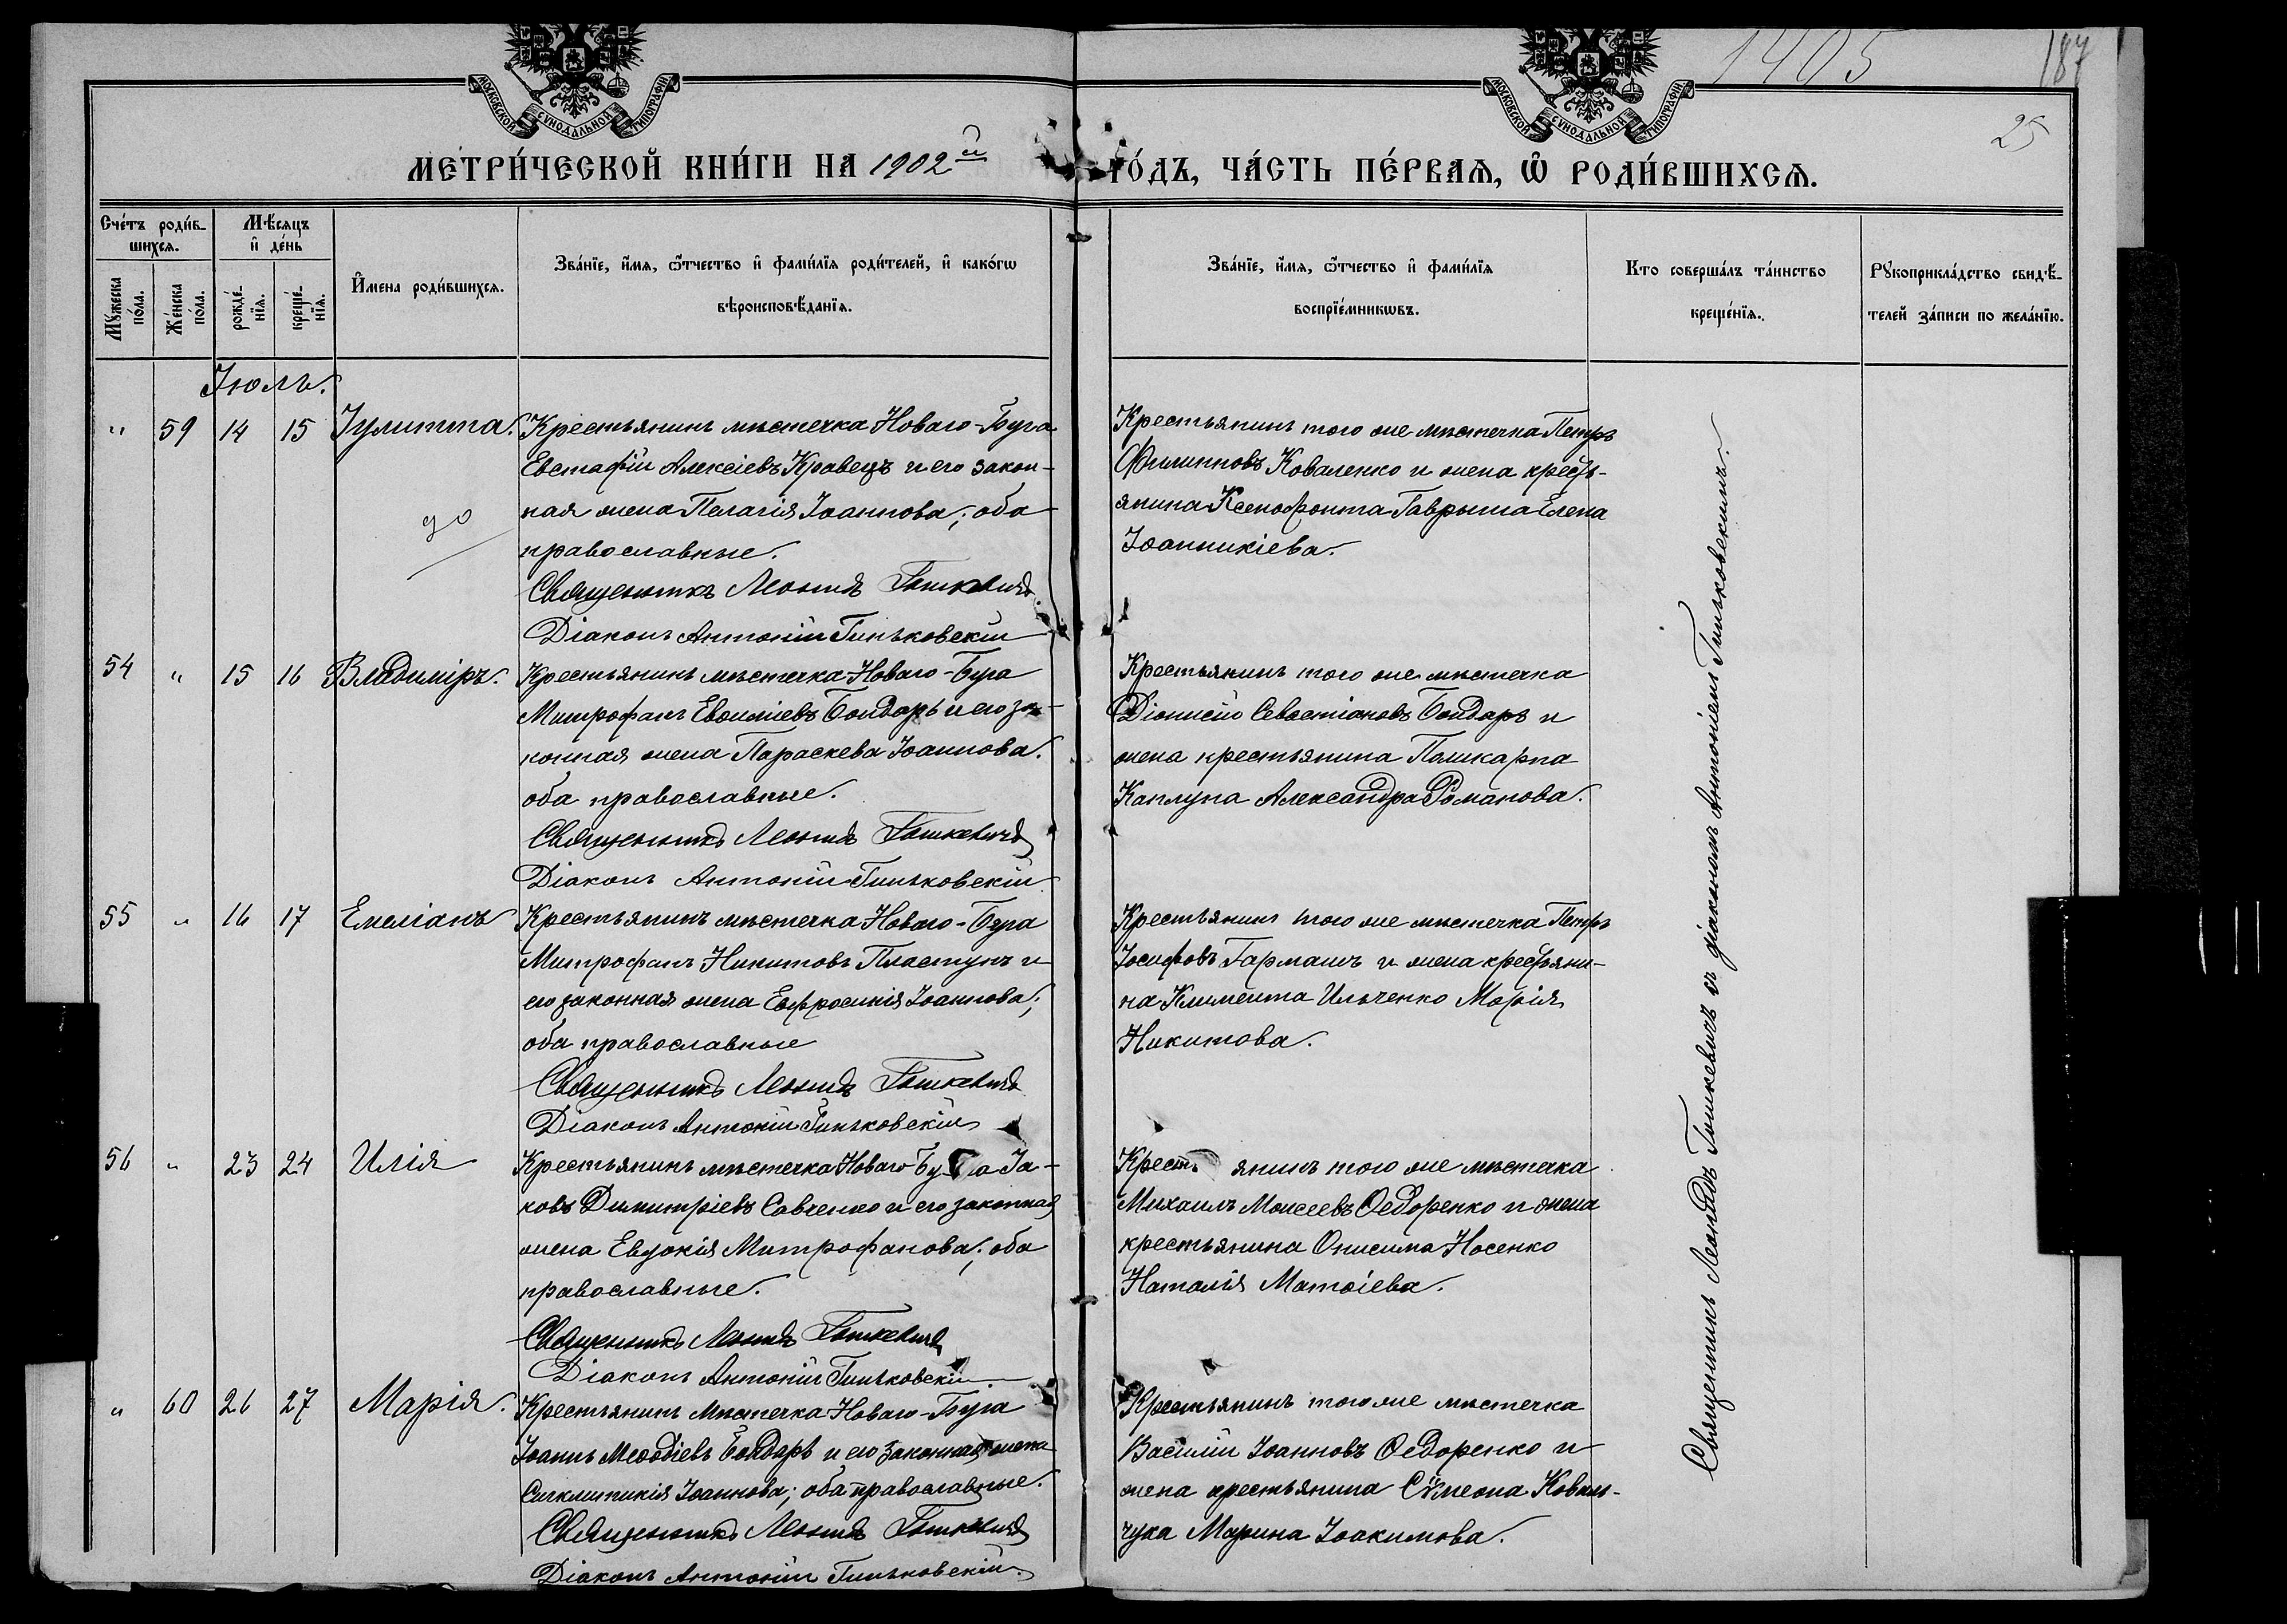 1405
187
25
МОСКОВСКОЙ СѴНОДАЛЬНОЙ ТИПОГРАФІИ
МОСКОВСКОЙ СѴНОДАЛЬНОЙ ТИПОГРАФІИ
МЕТРИ́ЧЕСКОЙ КНИ́ГИ НА 1902 й
ГО́ДЪ, ЧА́СТЬ ПЕ́РВАЯ, Ѡ҆ РОДИ́ВШИХСЯ.
Сче́тъ роди́в-
шихся.
Мѣ́сяцъ
и҆ де́нь
Мꙋжеска по́ла.
Же́нска по́ла.
рожде́-
нїя.
креще́-
нїя.
И҆мена роди́вшихся.
Зва́нїе, и҆́мя, ѻ҆́тчество и҆ фами́лїя роди́телей, и҆ како́гѡ
вѣроисповѣ́данїя.
Зва́нїе, и҆́мя, ѻ҆́тчество и҆ фами́лїя
воспрїе́мникѡвъ.
Кто соверша́лъ та́инство
креще́нїя.
Рꙋкоприкла́дство свидѣ́-
телей за́писи по жела́нїю.
Іюль.
" 59 14 15 Іулитта. Крестьянинъ мѣстечка Новаго-Буга
Евстафій Алексіевъ Кравецъ и его закон-
ная жена Пелагія Іоаннова; оба
православные.
Священникъ Леонидъ Гошкевичъ
Діаконъ Антоній Гиньковскій
Крестьянинъ того же мѣстечка Петръ
Филипповъ Коваленко и жена кресть-
янина Ксенофонта Гаврыша Елена
Іоанникіева.
54 " 15 16 Владиміръ. Крестьянинъ мѣстечка Новаго-Буга
Митрофанъ Бондарь и его за-
конная жена Параскева Іоаннова.
оба православные.
Священникъ Леонидъ Гошкевичъ
Діаконъ Антоній Гиньковскій
Крестьянинъ того же мѣстечка
Діонисій Севастіановъ Бондарь и
жена крестьянина Поликарпа
Каплуна Александра Романова.
55 " 16 17 Емеліанъ Крестьянинъ мѣстечка Новаго-Буга
Митрофанъ Никитовъ Пластунъ и
его законная жена Евфросинія Іоаннова;
оба православные
Священникъ Леонидъ Гошкевичъ
Діаконъ Антоній Гиньковскій
Крестьянинъ того же мѣстечка Петръ
Іосифовъ Гармашъ и жена крестьяни-
на Климента Ильченко Марія
Никитова.
56 " 23 24 Илія Крестьянинъ мѣстечка Новаго-Буга Іа-
ковъ Димитріевъ Савченко и его законная
жена Евдокія Митрофанова; оба
православные.
Священникъ Леонидъ Гошкевичъ
Діаконъ Антоній Гиньковскій.
Крестьянинъ того же мѣстечка
Михаилъ Моисеевъ Ѳедоренко и жена
крестьянина Онисима Носенко
Наталія Матѳіева.
" 60 26 27 Марія. Крестьянинъ мѣстечка Новаго-Буга
Іоаннъ Меѳодіевъ Бондарь и его законная жена
Синклитикія Іоаннова; оба православные.
Священникъ Леонидъ Гошкевичъ
Діаконъ Антоній Гиньковскій.
Крестьянинъ того же мѣстечка
Василій Іоанновъ Ѳедоренко и
жена крестьянина Сѵмеона Коваль-
чука Марина Іоакимова.
Священникъ Леонидъ Гошкевичъ съ діакономъ Антоніемъ Гиньковскимъ.